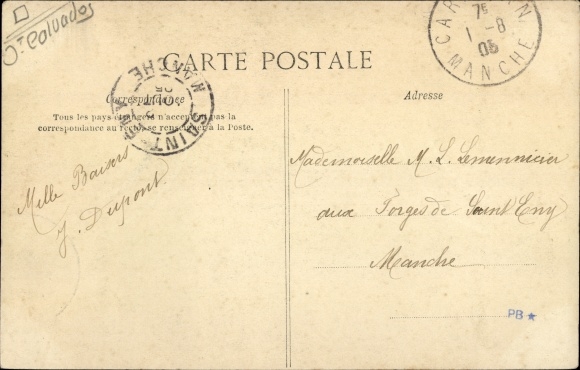 Dt Calvados
CARTE POSTALE
CAR AN
7E
1-8
05
MANCHE
SAINT NY
MANCHE
05
Correspondance
Tous les pays étrangers n'acceptent pas la
correspondance au recto, se renseigner à la Poste.
Adresse
Mille Baisers
Y. Dupont
Mademoiselle M. L. Lemennicier
aux Forges de Saint Eny
Manche
PB★